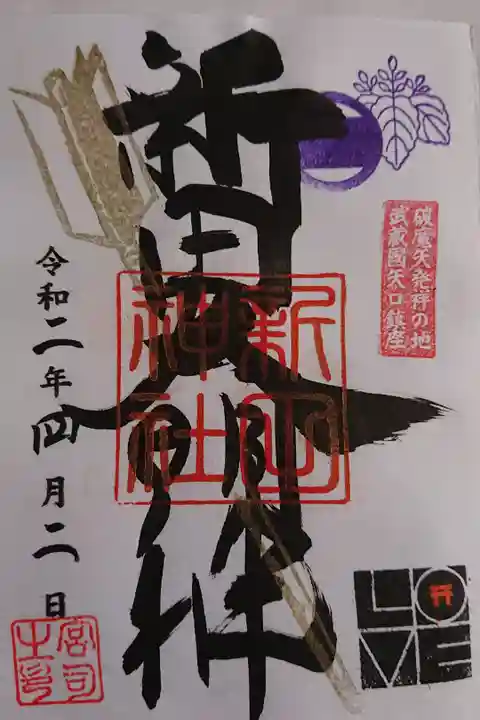 破魔矢発祥の地
武蔵國矢口鎮座
新田大明神
新田
神社
令和二年四月二日
宮司
之印
LOVE